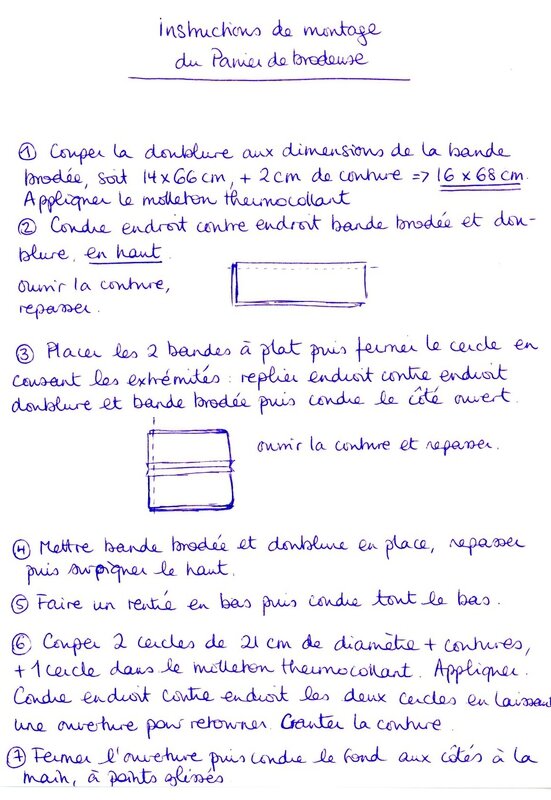 Instructions de montage
du Panier de brodeuse
① Couper la doublure aux dimensions de la bande
brodée, soit 14 x 66 cm, + 2 cm de couture => 16 x 68 cm.
Appliquer le molleton thermocollant
② Coudre endroit contre endroit bande brodée et dou-
blure, en haut.
ouvrir la couture,
repasser.
③ Placer les 2 bandes à plat puis fermer le cercle en
cousant les extrémités : replier endroit contre endroit
doublure et bande brodée puis coudre le côté ouvert.
ouvrir la couture et repasser.
④ Mettre bande brodée et doublure en place, repasser
puis surpiquer le haut.
⑤ Faire un rentré en bas puis coudre tout le bas.
⑥ Couper 2 cercles de 21 cm de diamètre + coutures,
+ 1 cercle dans le molleton thermocollant. Appliquer.
Coudre endroit contre endroit les deux cercles en laissant
une ouverture pour retourner. Cranter la couture.
⑦ Fermer l'ouverture puis coudre le fond aux côtés à la
main, à points glissés